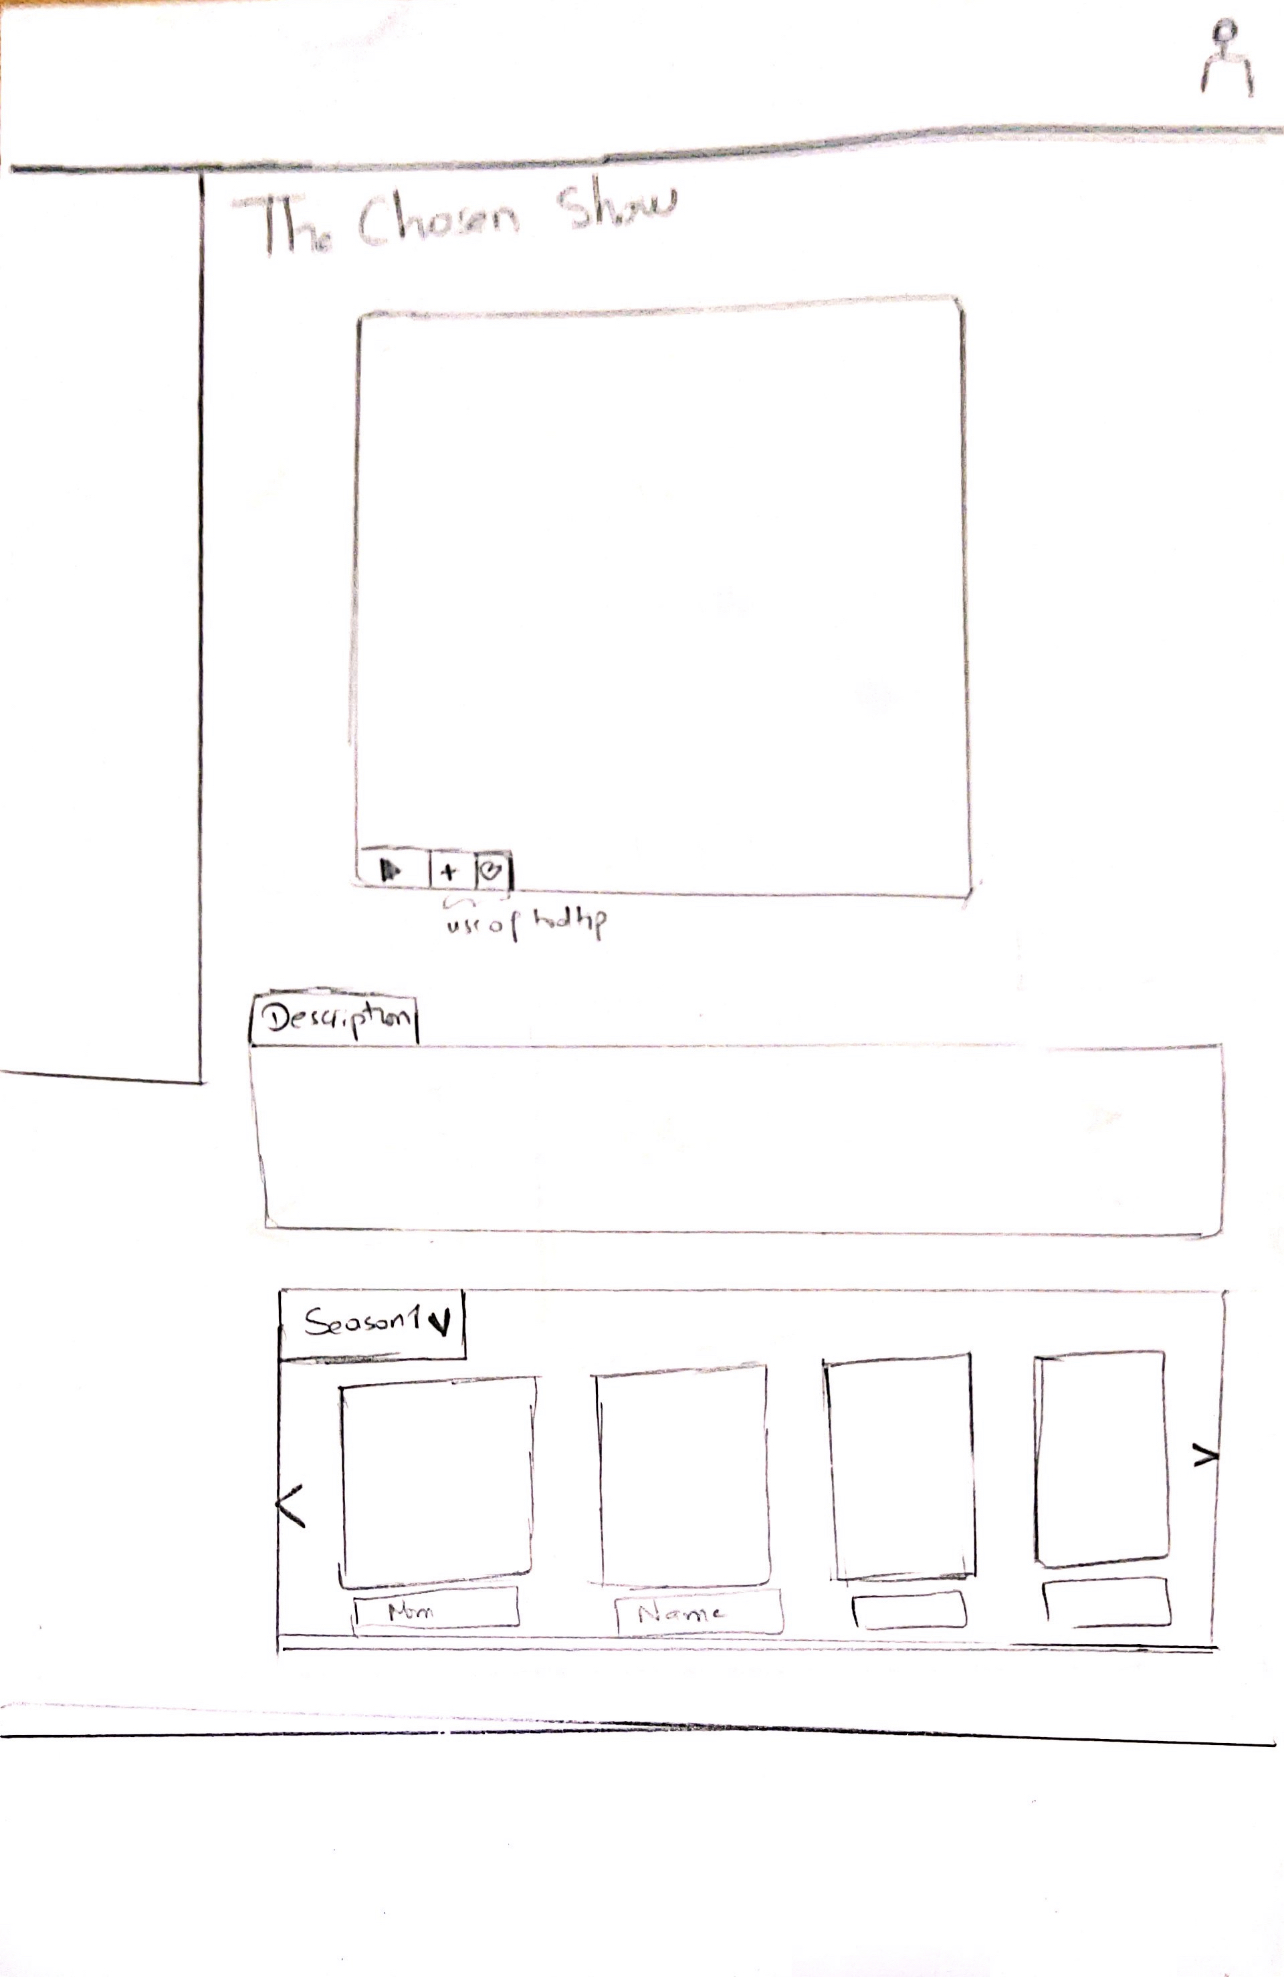 The Chosen Show
use of tooltip
Description
Season 1
Name